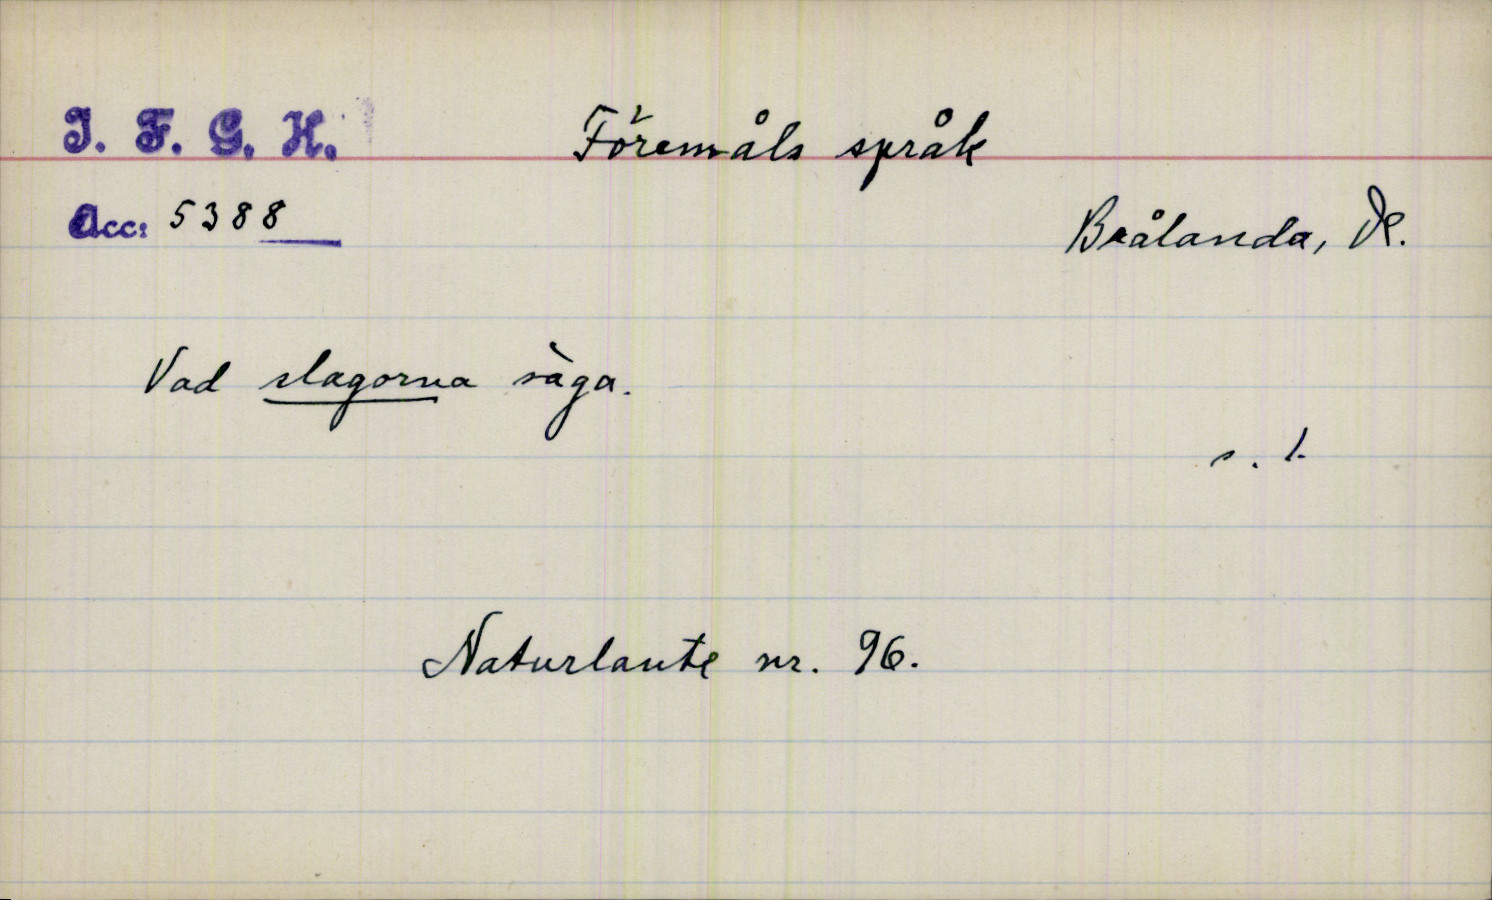 I. F. G. H.
Föremåls språk
Acc: 5388
Brålanda, Dl.
Vad slagorna säga.
s. 1.
Naturlaute nr. 96.